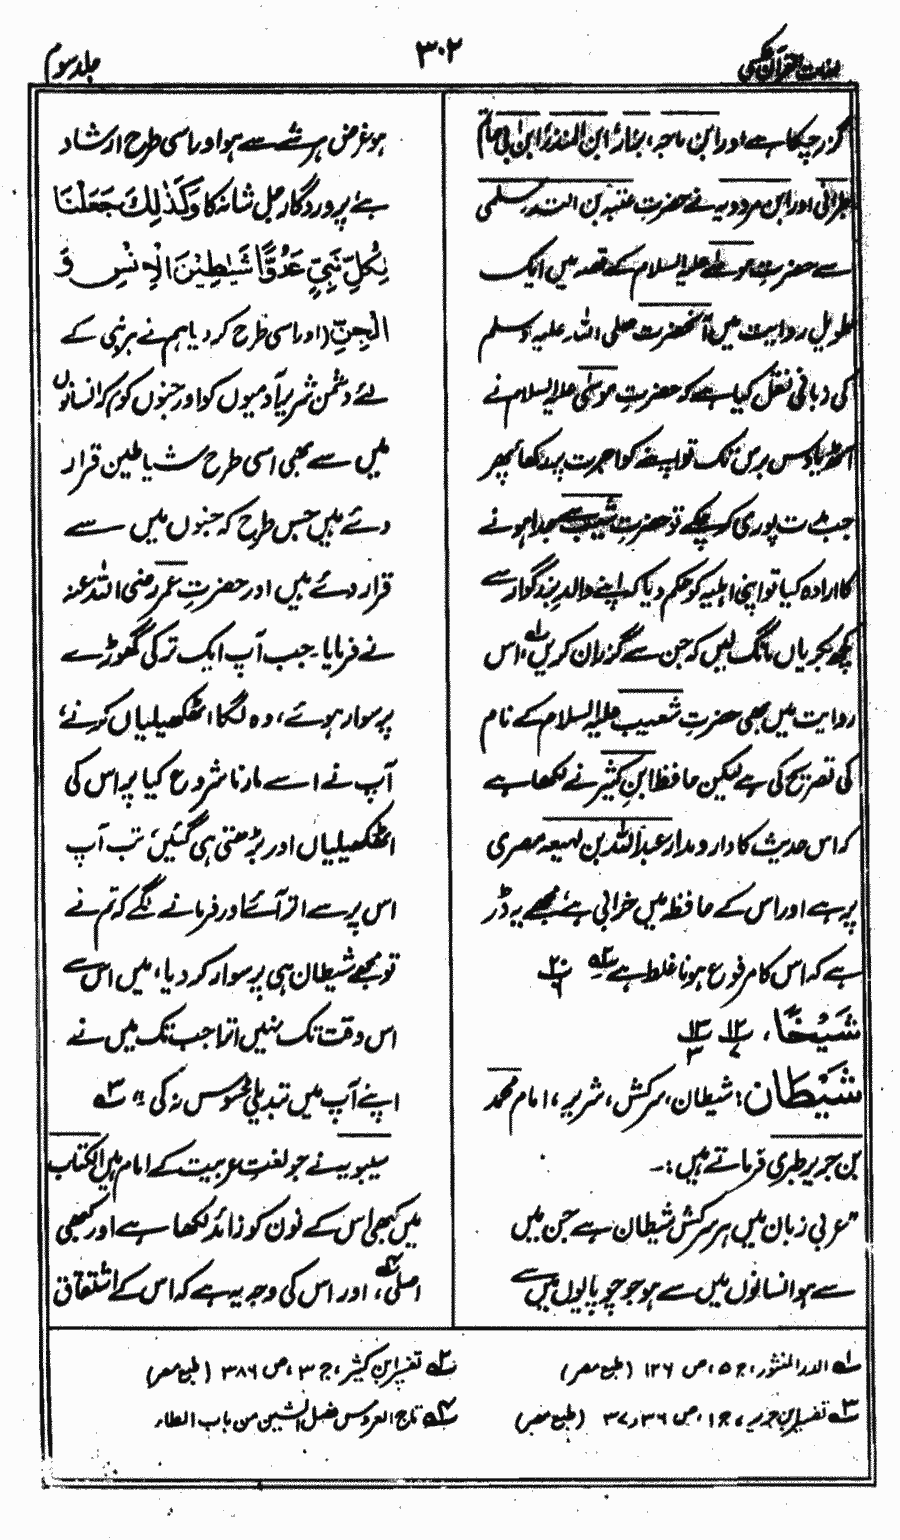 لغات القرآن
۳۰۲
جلد سوم
گزر چکا ہے اور ابن ماجہ، بزار، ابن المنذر، ابن ابی حاتم
طبرانی اور ابن مردویہ نے حضرت عتبہ بن الندر سلمی
سے حضرت موسیٰ علیہ السلام کے قصہ میں ایک
طویل روایت میں آنحضرت صلی اللہ علیہ وسلم
کی زبانی نقل کیا ہے کہ حضرت موسیٰ علیہ السلام نے
آٹھ یا دس برس تک تو اپنے کو اجرت پر رکھا، پھر
جب مدت پوری کر چکے تو حضرت شعیب سے جدا ہونے
کا ارادہ کیا تو اپنی اہلیہ کو حکم دیا کہ اپنے والد بزرگوار سے
کچھ بکریاں مانگ لیں کہ جن سے گزران کریں ۱ے، اس
روایت میں بھی حضرت شعیب علیہ السلام کے نام
کی تصریح کی ہے لیکن حافظ ابن کثیر نے لکھا ہے
کہ اس حدیث کا دار و مدار عبداللہ بن لہیعہ مصری
پر ہے اور اس کے حافظہ میں خرابی ہے، مجھے یہ ڈر
ہے کہ اس کا مرفوع ہونا غلط ہے ۲ے ۲۰/۶
شَيْخًا، ۱۲/۷ ۱۲/۳
شَيْطَان: شیطان، سرکش، شریر، امام محمد
بن جریر طبری فرماتے ہیں:۔
"عربی زبان میں ہر سرکش شیطان ہے جن میں
سے ہو انسانوں میں سے ہو جو چوپایوں میں سے
ہو غرض ہر شے سے ہو اور اسی طرح ارشاد
ہے پروردگار جل شانہ کا وَكَذٰلِكَ جَعَلْنَا
لِكُلِّ نَبِيٍّ عَدُوًّا شَيٰطِيْنَ الْاِنْسِ وَ
الْجِنِّ (اور اسی طرح کر دیا ہم نے ہر نبی کے
لئے دشمن شریر آدمیوں کو اور جنوں کو) کہ انسانوں
میں سے بھی اسی طرح شیاطین قرار
دئے ہیں جس طرح کہ جنوں میں سے
قرار دئے ہیں اور حضرت عمر رضی اللہ عنہ
نے فرمایا۔ جب آپ ایک ترکی گھوڑے
پر سوار ہوئے، وہ لگا اٹھکھیلیاں کرنے،
آپ نے اسے مارنا شروع کیا پر اس کی
اٹھکھیلیاں اور بڑھتی ہی گئیں، تب آپ
اس پر سے اتر آئے اور فرمانے لگے کہ تم نے
تو مجھے شیطان ہی پر سوار کر دیا، میں اس سے
اس وقت تک نہیں اترا جب تک میں نے
اپنے آپ میں تبدیلی محسوس نہ کی" ۳ے
سیبویہ نے جو لغت عربیت کے امام ہیں الکتاب
میں کبھی اس کے نون کو زائد لکھا ہے اور کبھی
اصلی ۴ے، اور اس کی وجہ یہ ہے کہ اس کے اشتقاق
۱ے الدر المنثور، ج ۵، ص ۱۲۶ (طبع مصر)
۲ے تفسیر ابن کثیر، ج ۳، ص ۳۸۶ (طبع مصر)
۳ے تفسیر ابن جریر، ج ۱، ص ۳۶ و ۳۷ (طبع مصر)
۴ے تاج العروس فصل الشین من باب الطاء